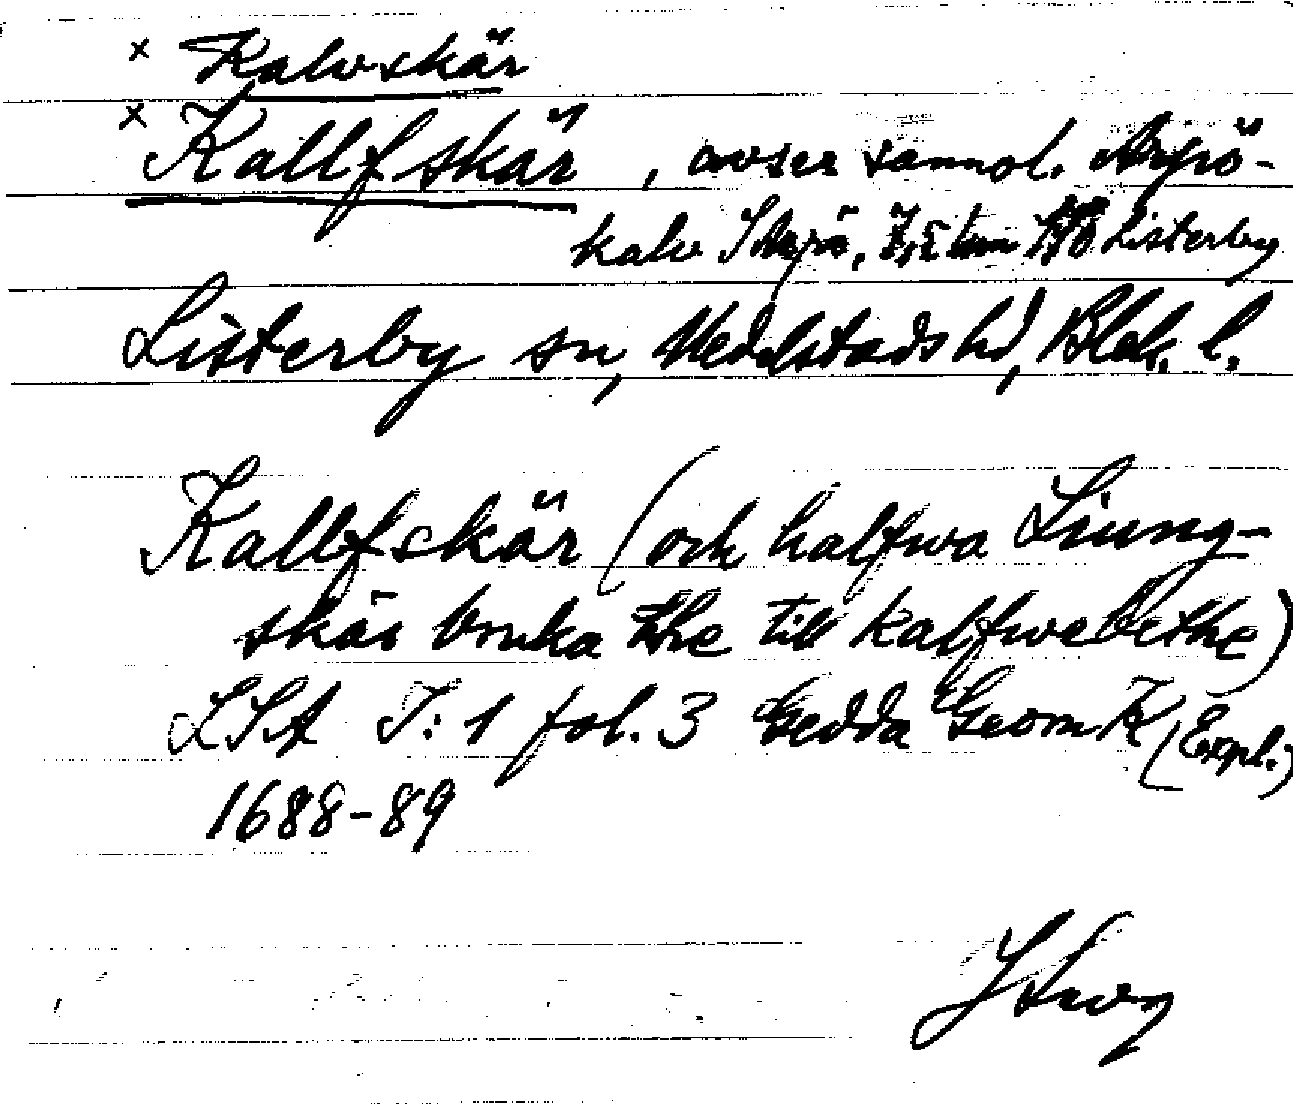 x Kalvskär
x Kallfskär, avser sannol. Arpö-
kalv S Arpö, 7,5 km SO Listerby
Listerby sn, Medelstads hd, Blek. l.
Kallfskär (och halfwa Liung-
skär bruka the till kalfwebethe)
LSA I:1 fol. 3 Gedda GeomK (Expl.)
1688-89